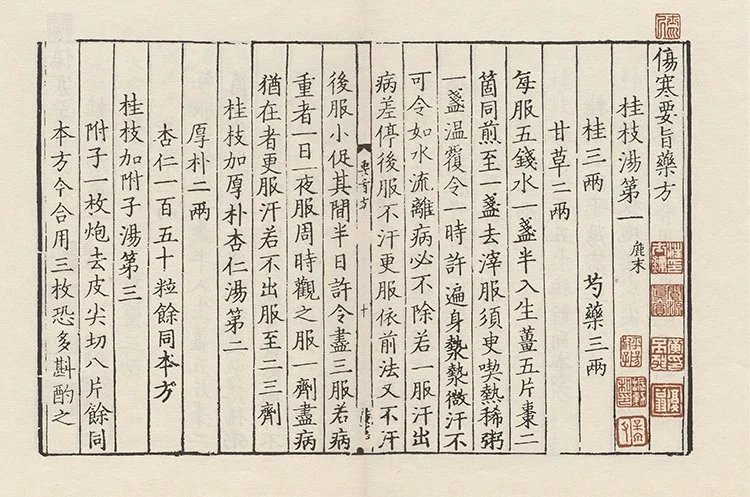 傷寒要旨藥方
桂枝湯第一 麄末
桂三兩 芍藥三兩
甘草二兩
每服五錢水一盞半入生薑五片棗二
箇同煎至一盞去滓服須更喫熱稀粥
一盞温覆令一時許遍身漐漐微汗不
可令如水流離病必不除若一服汗出
病差停後服不汗更服依前法又不汗
要旨方
十
後服小促其間半日許令盡三服若病
重者一日一夜服周時觀之服一劑盡病
猶在者更服汗若不出服至二三劑
桂枝加厚朴杏仁湯第二
厚朴二兩
杏仁一百五十粒餘同本方
桂枝加附子湯第三
附子一枚炮去皮尖切八片餘同
本方今合用三枚恐多斟酌之